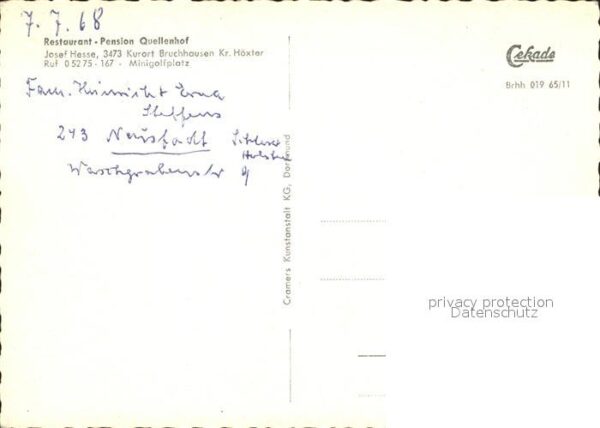 7.7.68
Restaurant - Pension Quellenhof
Josef Hesse, 3473 Kurort Bruchhausen Kr. Höxter
Ruf 05275-167 - Minigolfplatz
Fam. Heinrich + Erna
Steffens
243 Neustadt
Holstein
Waschgrabenstr
Cekade
Brhh 019 65/11
Cramers Kunstanstalt KG, Dortmund
privacy protection
Datenschutz